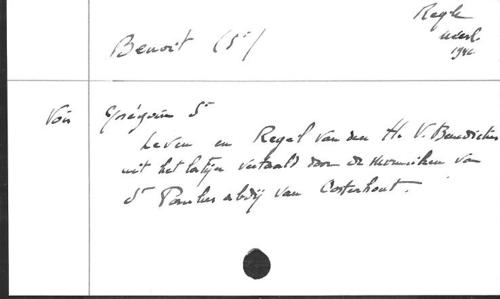 Regle
néerl.
1941
Benoit (St)
Voir Grégoire St
Leven en Regel van den H. V. Benedictus
uit het latijn vertaald door de monniken van
St Paulus abdij van Oosterhout.